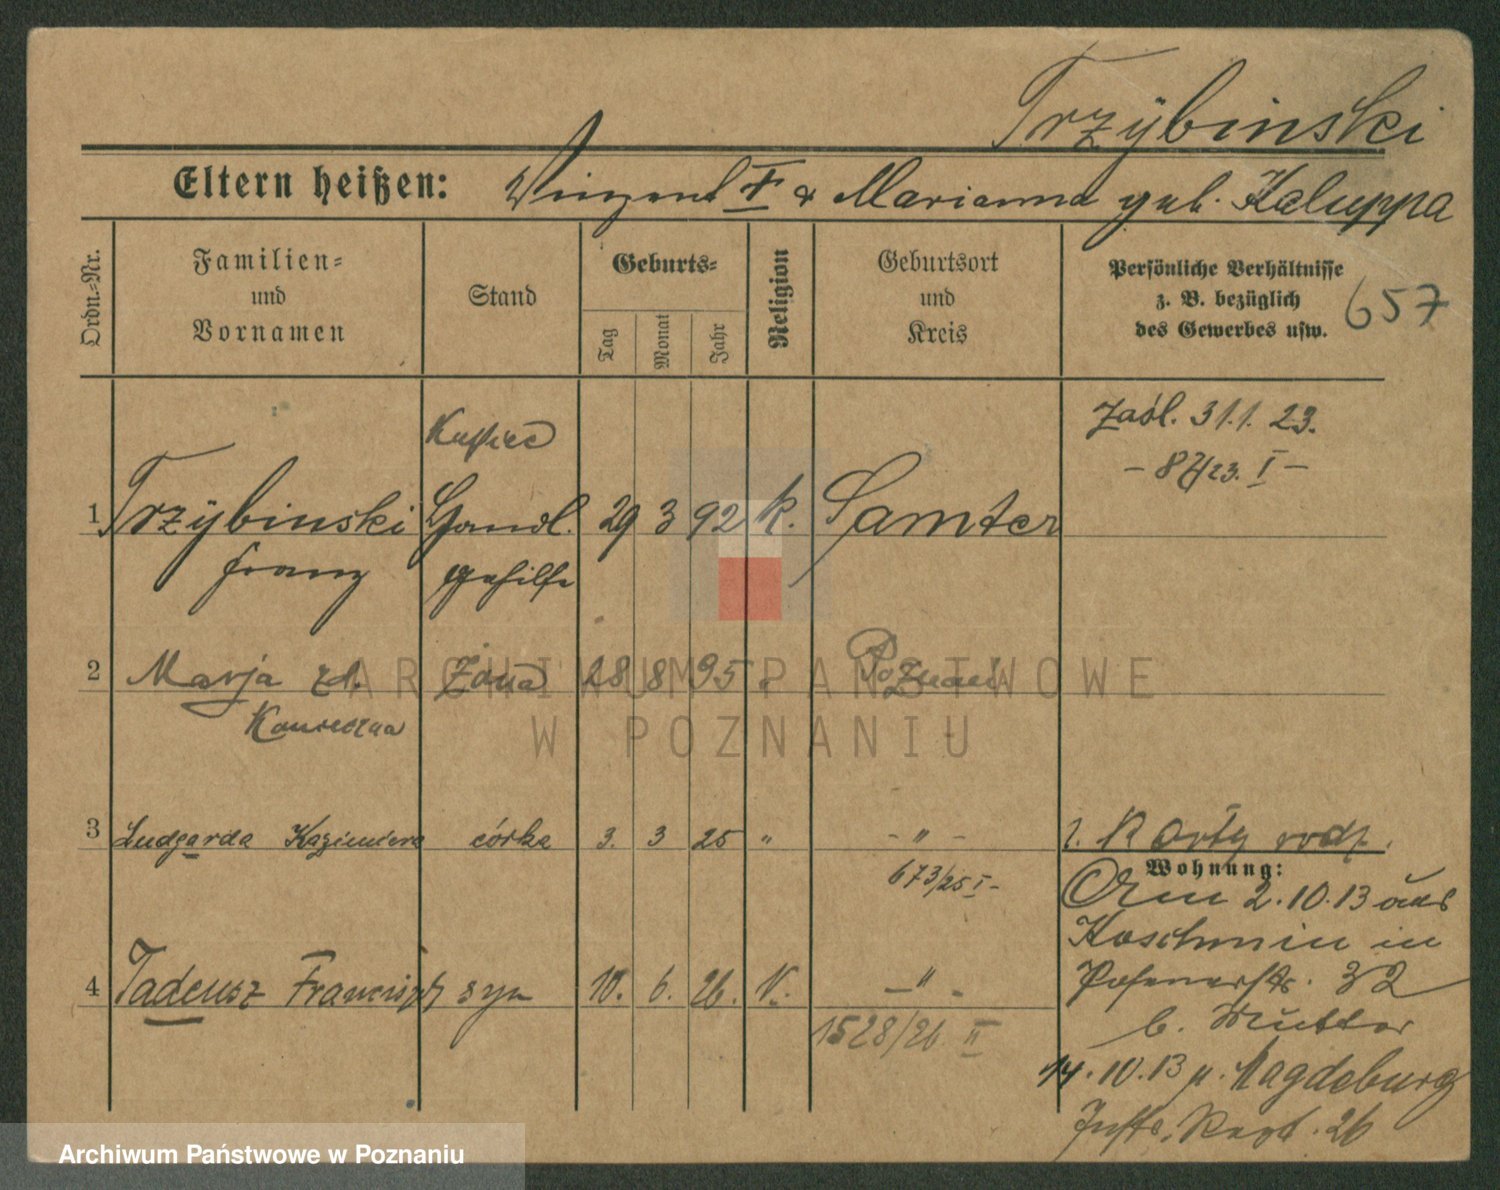 Trzÿbinski
Eltern heißen: Vinzent † & Marianna geb. Kaluppa
Ordn.-Nr.
Familien-
und
Vornamen
Stand
Geburts-
Tag
Monat
Jahr
Religion
Geburtsort
und
Kreis
Persönliche Verhältnisse
z. B. bezüglich
des Gewerbes usw.
657
Kupiec
zaśl. 31.1.23.
- 87/23. I -
1 Trzÿbinski Handl. 29 3 92 k. Samter
Franz gehilfe
2 Marja żona 28 8 95 " Poznań
3 Ludgarda Kazimiera córka 3. 3 25 " - " -
673/25 I -
Wohnung:
Am 2.10.13 aus
Koschmin in
Posenerstr. 32
b. Mutter
4 Tadeusz Franciszek syn 10. 6. 26. k. - " -
1528/26 II
14.10.13 n. Magdeburg
Inftr. Regt. 26
ARCHIWUM PAŃSTWOWE
W POZNANIU
Archiwum Państwowe w Poznaniu